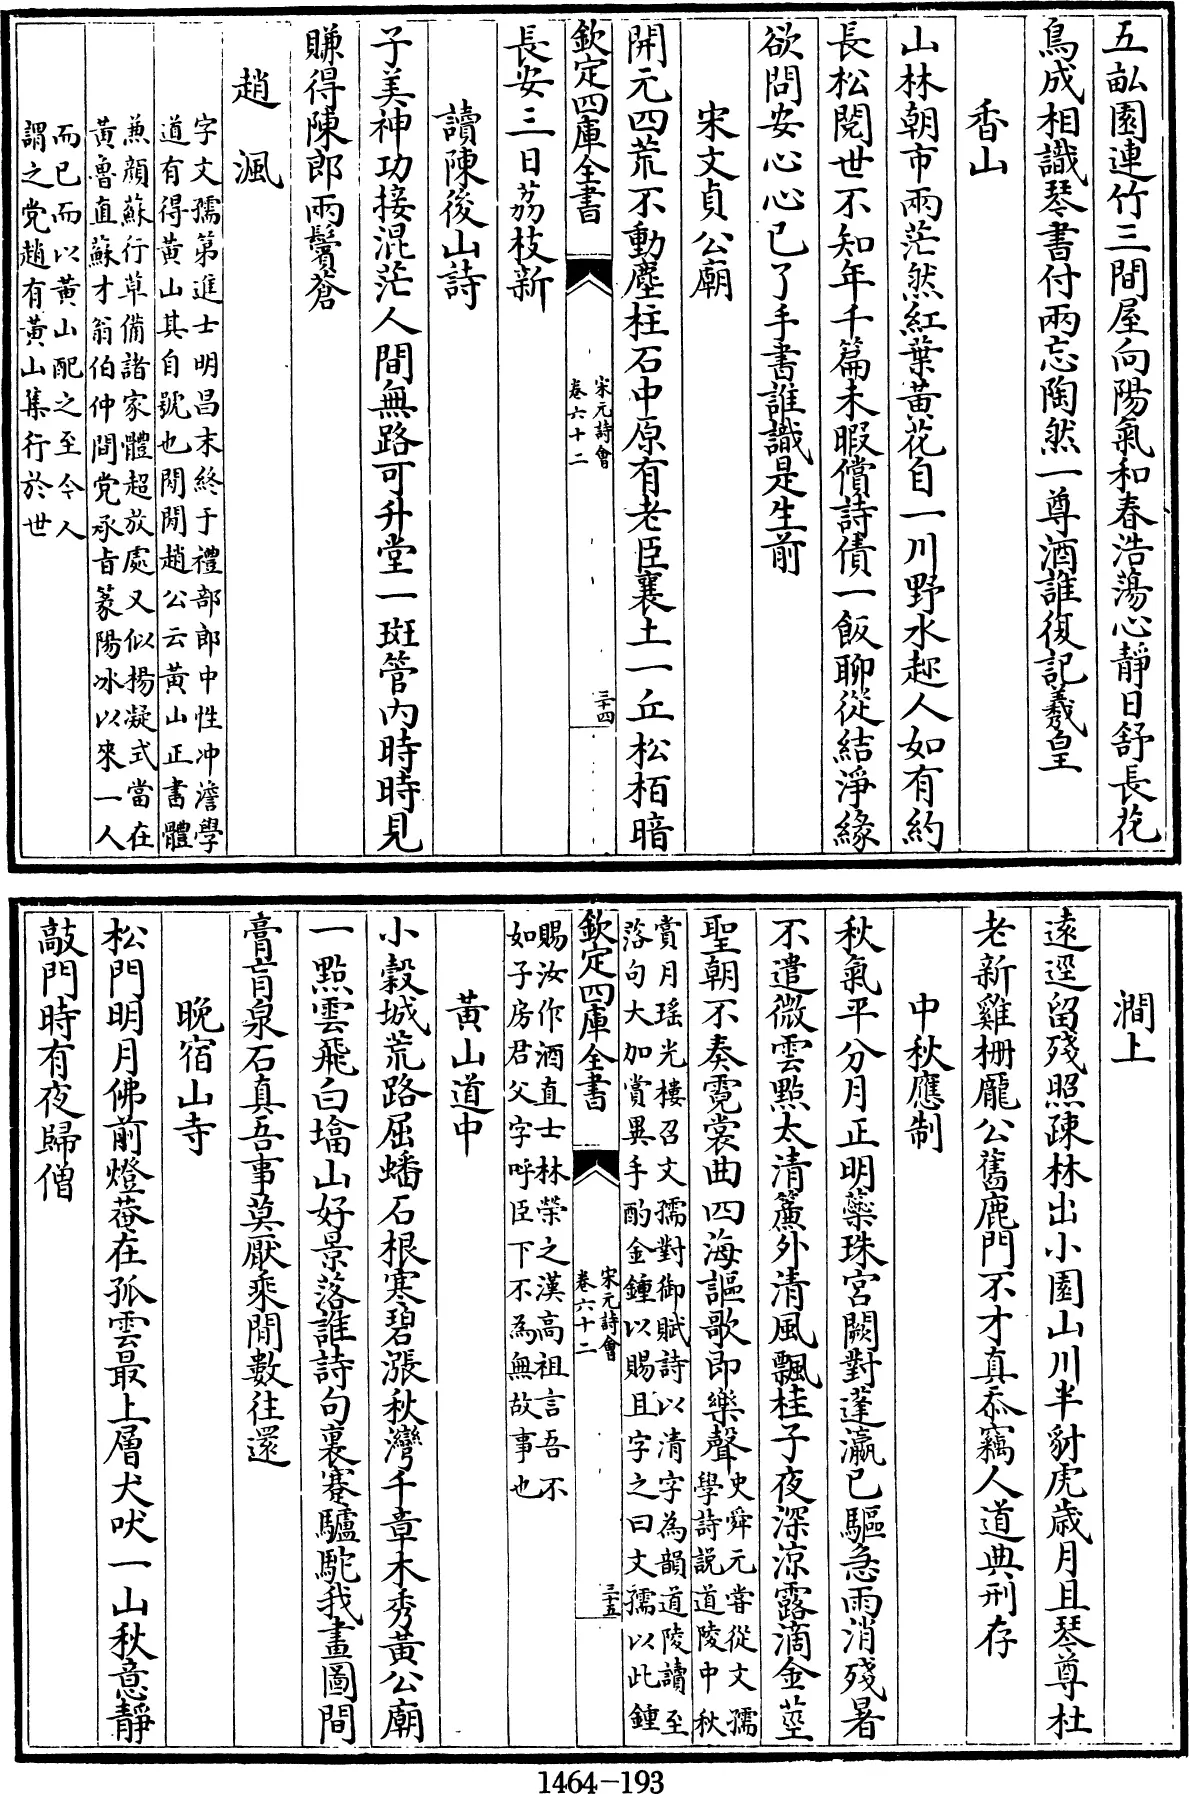 五畝園連竹三間屋向陽氣和春浩蕩心靜日舒長花
鳥成相識琴書付兩忘陶然一尊酒誰復記羲皇
香山
山林朝市兩茫然紅葉黃花自一川野水趂人如有約
長松閱世不知年千篇未暇償詩債一飯聊從結淨緣
欲問安心心已了手書誰識是生前
宋文貞公廟
開元四荒不動塵柱石中原有老臣襄土一丘松栢暗
欽定四庫全書
宋元詩會
卷六十二
三十四
長安三日荔枝新
讀陳後山詩
子美神功接混茫人間無路可升堂一斑管內時時見
賺得陳郎兩鬢蒼
趙渢
字文孺第進士明昌末終于禮部郎中性冲澹學
道有得黃山其自號也閑閑趙公云黃山正書體
兼顏蘇行草備諸家體超放處又似楊凝式當在
黃魯直蘇才翁伯仲間党承旨篆陽冰以來一人
而已而以黃山配之至今人
謂之党趙有黃山集行於世
澗上
遠逕留殘照疎林出小園山川半豺虎歲月且琴尊杜
老新雞柵龎公舊鹿門不才真忝竊人道典刑存
中秋應制
秋氣平分月正明藥珠宮闕對蓬瀛已驅急雨消殘暑
不遣微雲點太清簾外清風飄桂子夜深涼露滴金莖
聖朝不奏霓裳曲四海謳歌即樂聲
史舜元嘗從文孺
學詩說道陵中秋
賞月瑤光樓召文孺對御賦詩以清字為韻道陵讀至
落句大加賞異手酌金鍾以賜且字之曰文孺以此鍾
欽定四庫全書
宋元詩會
卷六十二
三十五
賜汝作酒直士林榮之漢高祖言吾不
如子房君父字呼臣下不為無故事也
黃山道中
小穀城荒路屈蟠石根寒碧漲秋灣千章木秀黃公廟
一點雲飛白墖山好景落誰詩句裏蹇驢馱我畫圖間
膏肓泉石真吾事莫厭乘閒數往還
晚宿山寺
松門明月佛前燈菴在孤雲最上層犬吠一山秋意靜
敲門時有夜歸僧
1464-193